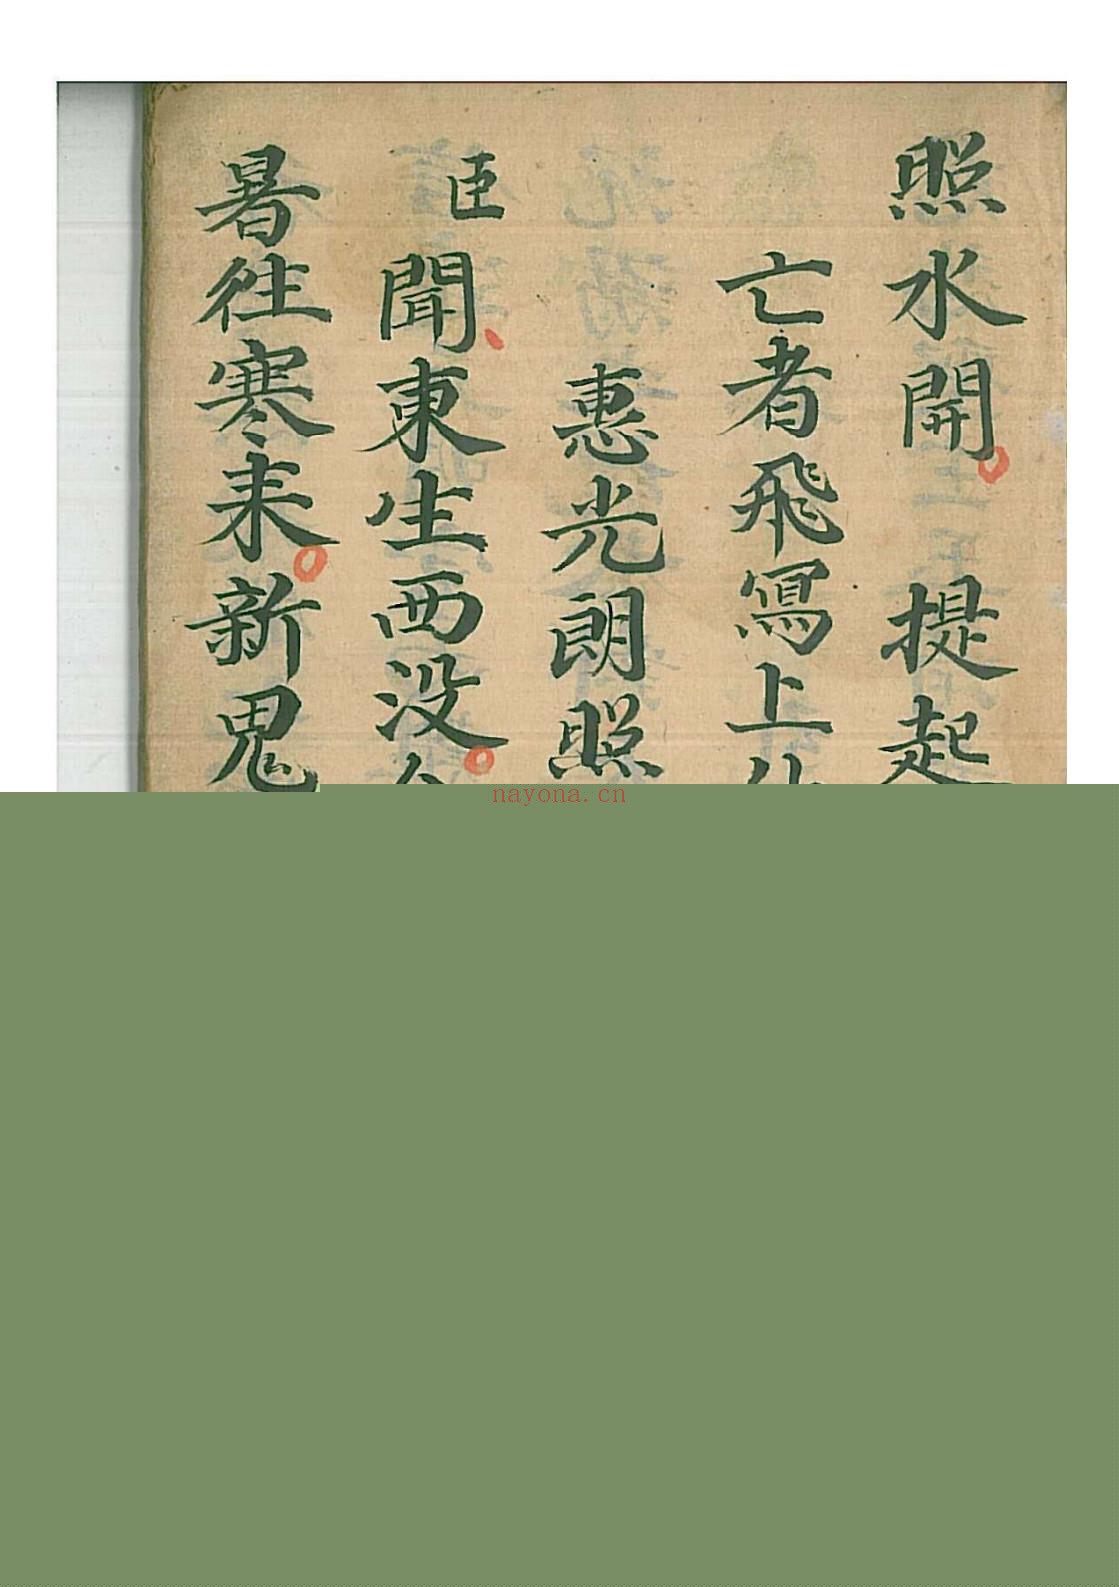 照水開。提起
亡者飛寫上
惠光朗照
臣聞、東生西没。
暑往寒来。新鬼
nayona.cn